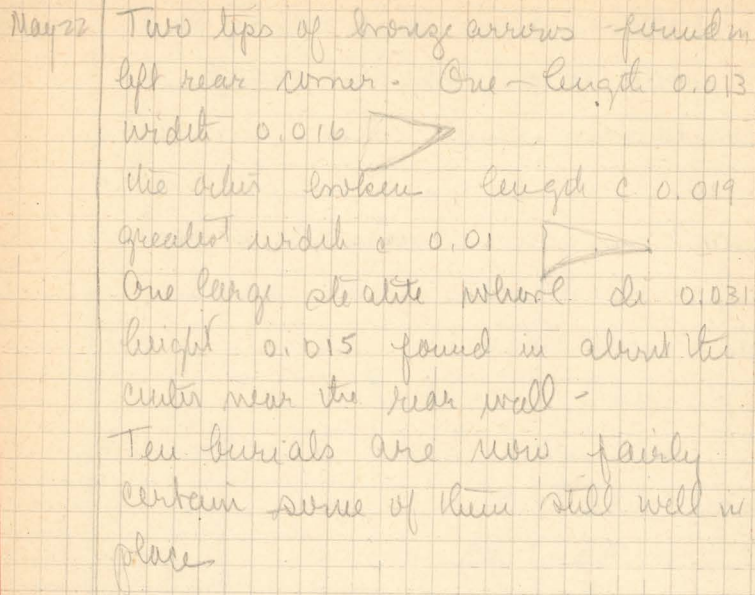 May 22 Two tips of bronze arrows found in
left rear corner - One - length 0.013
width 0.016
the other broken length c 0.019
greatest width c 0.01
One large steatite whorl di 0.031
height 0.015 found in about the
center near the rear wall -
Ten burials are now fairly
certain some of them still well in
place